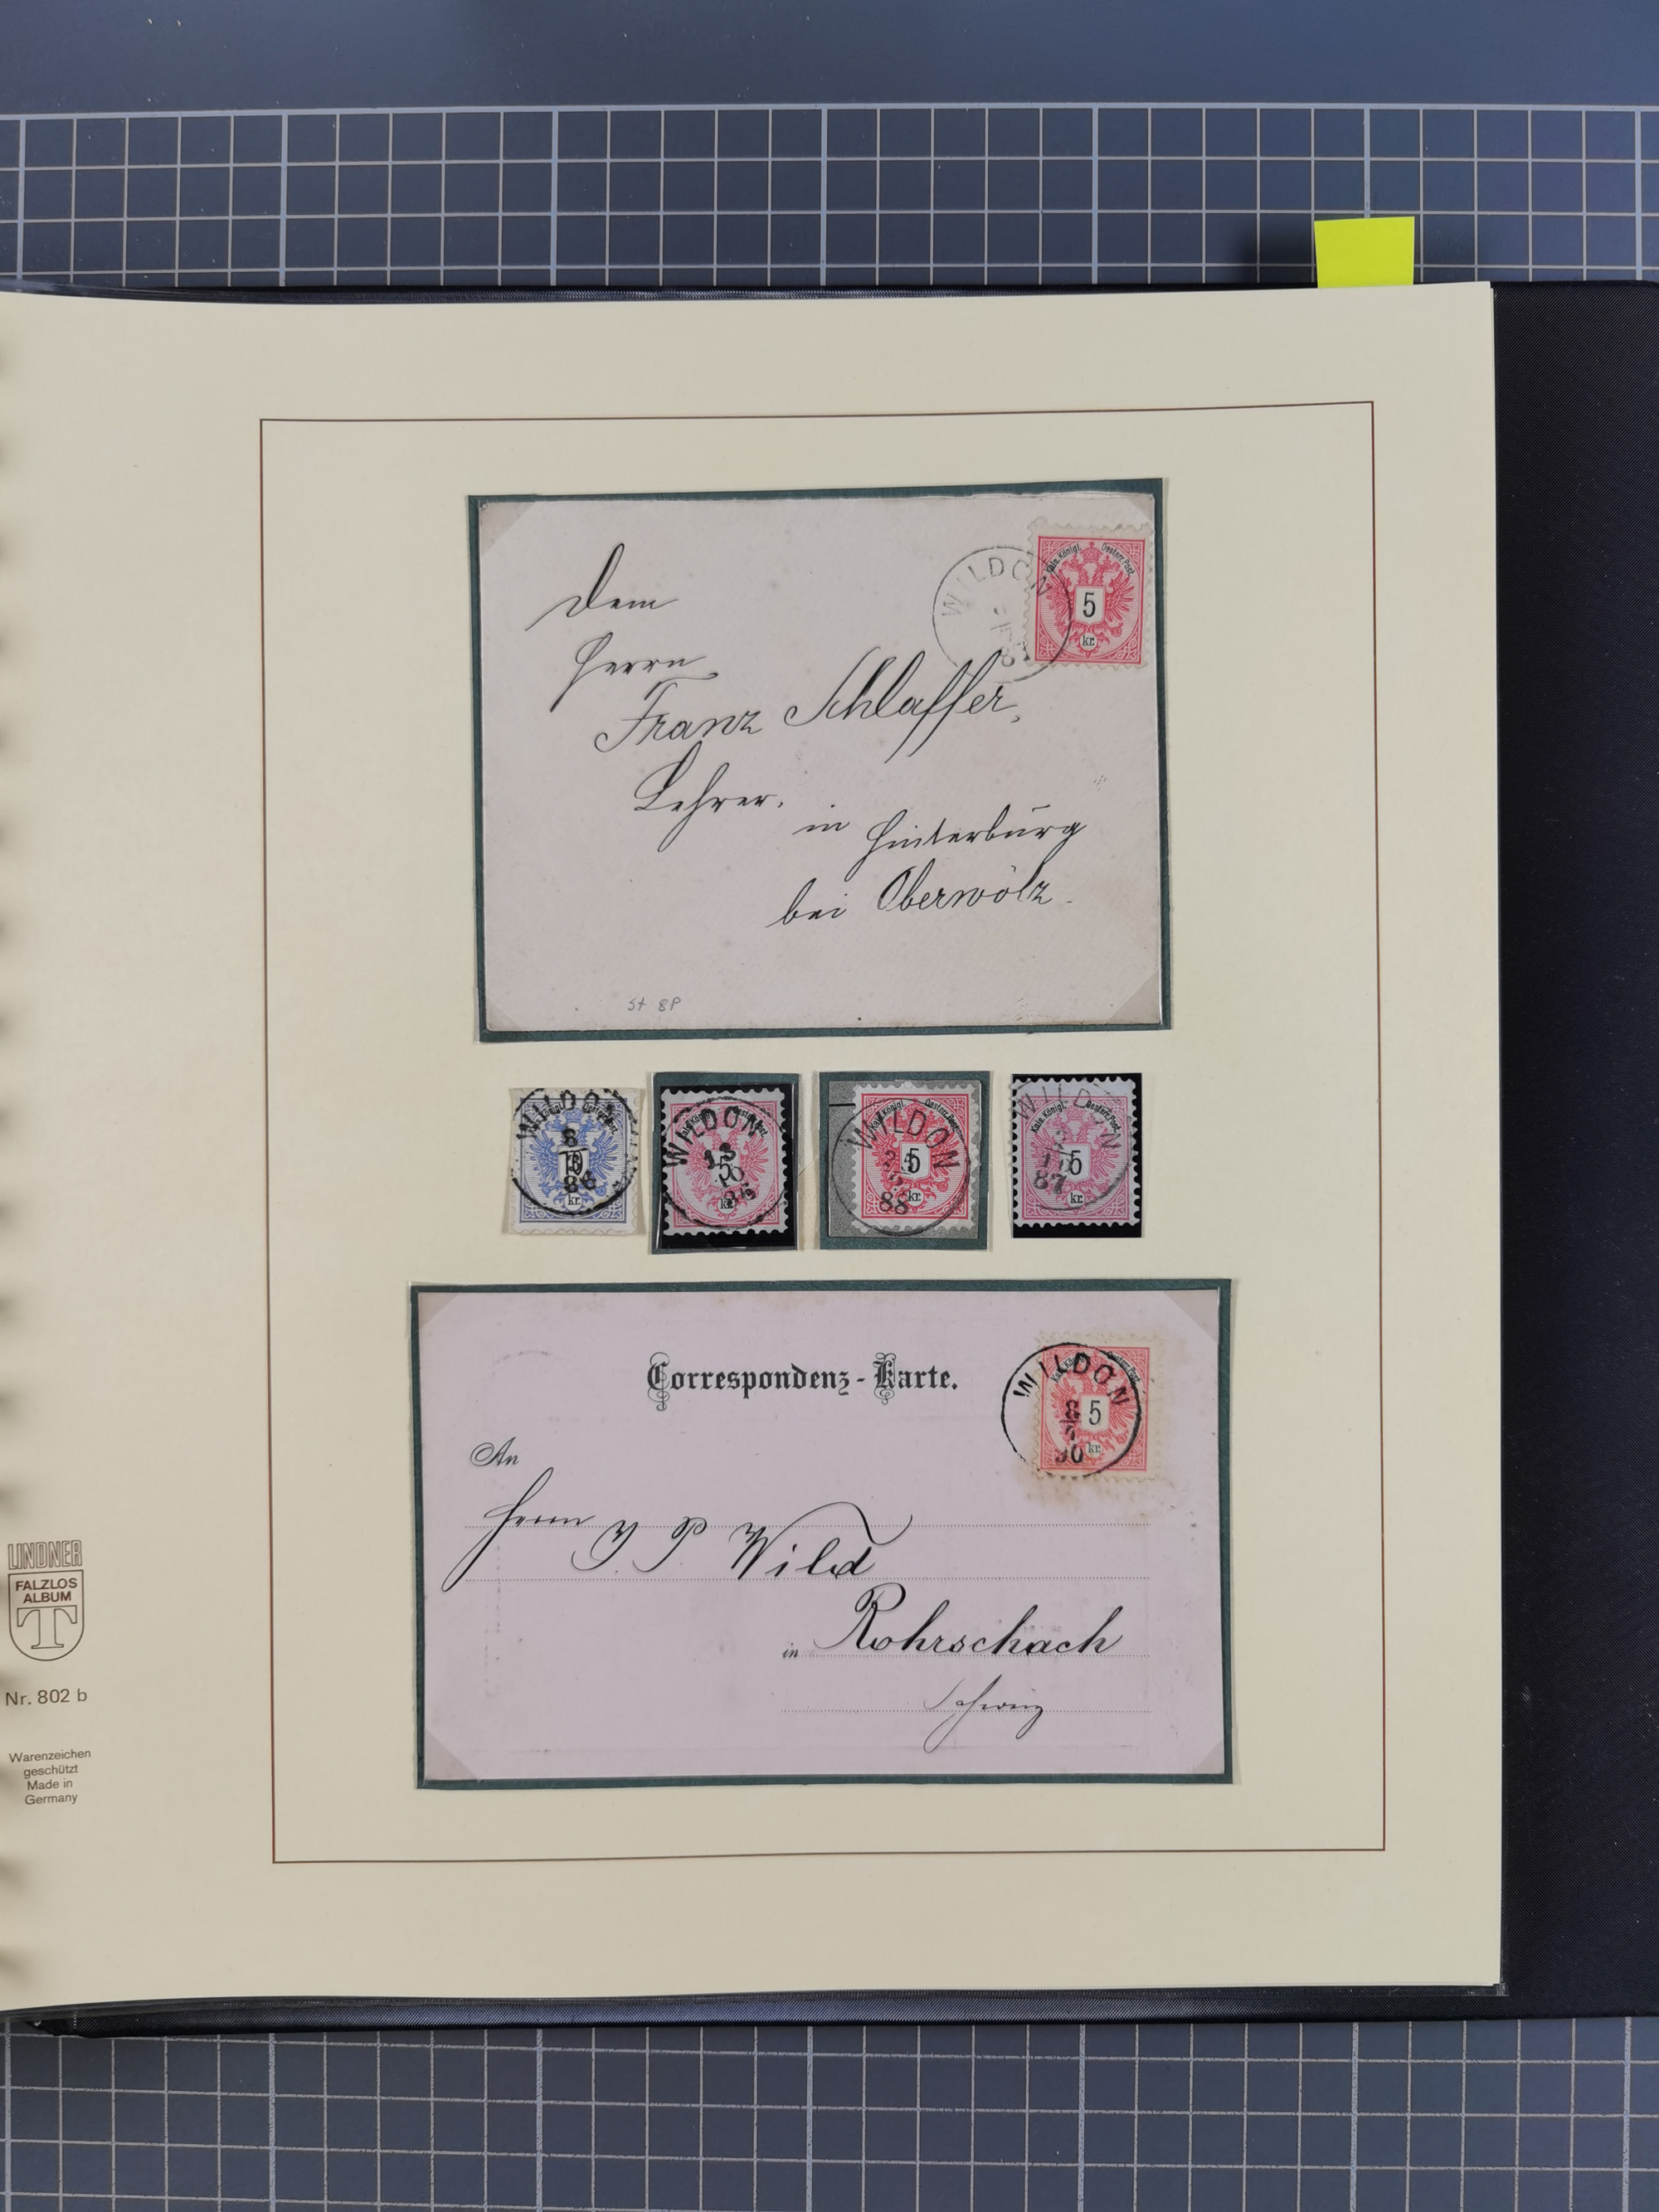 Dem
Herrn
WILDON
Kais. Königl. Oesterr. Post.
5
kr.
Franz Schlaffer,
Lehrer.
in Hinterburg
bei Oberwölz.
St 8P
WILDON
8
86
kr.
WILDON
5
kr.
WILDON
Kais. Königl. Oesterr. Post.
5
kr.
88
WILDON
Kais. Königl. Oesterr. Post.
5
kr.
87
Correspondenz-Karte.
WILDON
8
5
kr.
90
An
Herrn J. P. Wild
in Rohrschach
Schweiz
LINDNER
FALZLOS
ALBUM
T
Nr. 802 b
Warenzeichen
geschützt
Made in
Germany